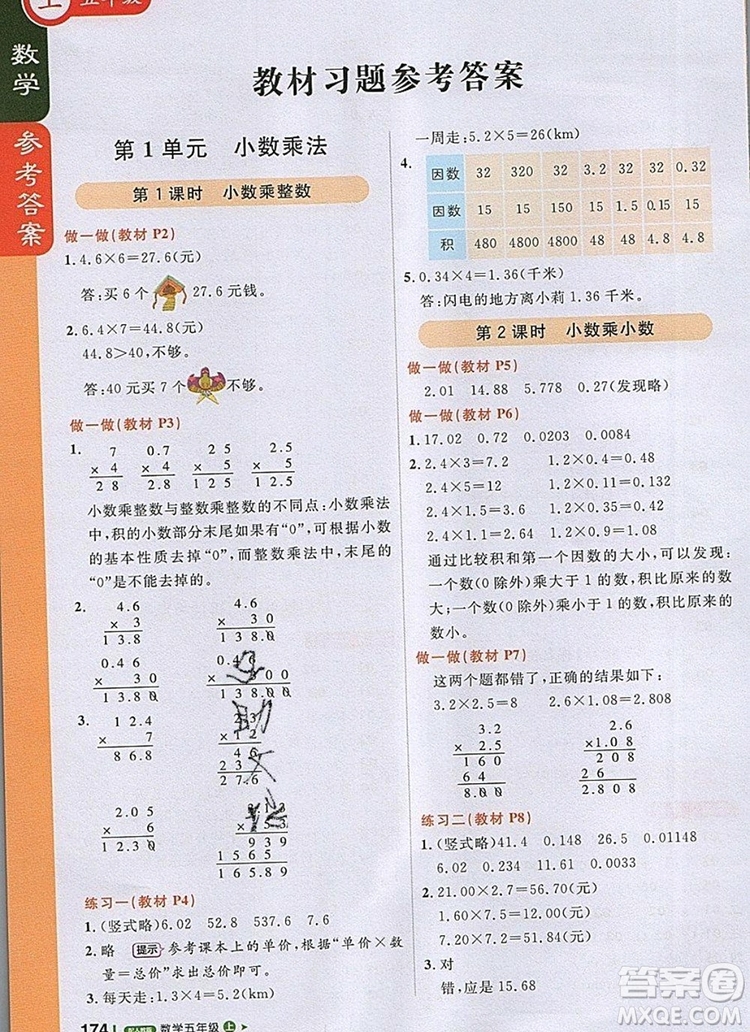 上 五年级
数学
参考答案
教材习题参考答案
第1单元 小数乘法
第1课时 小数乘整数
做一做(教材 P2)
1. 4.6×6=27.6(元)
答:买6个 27.6元钱。
2. 6.4×7=44.8(元)
44.8>40,不够。
答:40元买7个 不够。
做一做(教材 P3)
1. 7 0.7 2 5 2.5
× 4 × 4 × 8 × 8
2 8 2.8 2 0 0 2 0.0
小数乘整数与整数乘整数的不同点:小数乘法
中,积的小数部分末尾如果有“0”,可根据小数
的基本性质去掉“0”,而整数乘法中,末尾的
“0”是不能去掉的。
2. 4.6 4.6
× 3 × 3 0
1 3.8 1 3 8.0
0.4 6 0.4
× 3 0 3 0
1 3.8 0 1 3 8.0 0
3. 1 2.4 2.3
× 7 × 1 2
8 6.8 4 6
2 3
2 7.6
2.0 5
× 6 × 5 3
1 2.3 0 9 3 9
1 5 6 5
1 6 5
练习一(教材 P4)
1. (竖式略)6.02 52.8 537.6 7.6
2. 略 提示 参考课本上的单价,根据“单价×数
量=总价”求出总价即可。
3. 每天走:1.3×4=5.2(km)
174 数学五年级 上
一周走:5.2×5=26(km)
4. 因数 32 320 32 32 3.2 32 0.32
因数 15 15 150 15 1.5 0.15 15
积 480 4800 4800 480 4.8 4.8 4.8
5. 0.34×4=1.36(千米)
答:闪电的地方离小莉1.36千米。
第2课时 小数乘小数
做一做(教材 P5)
2.01 14.88 5.778 0.27(发现略)
做一做(教材 P6)
1. 17.02 0.72 0.0203 0.0084
2. 2.4×3=7.2 1.2×0.4=0.48
2.4×5=12 1.2×0.5=0.6
2.4×1.5=3.6 1.2×0.3=0.36
2.4×1.1=2.64 1.2×0.7=0.84
通过比较积和第一个因数的大小,可以发现:
一个数(0除外)乘大于1的数,积比原来的数
大;一个数(0除外)乘小于1的数,积比原来的
数小。
做一做(教材 P7)
这两个题都错了,正确的结果如下:
3.2×2.5=8 2.6×1.08=2.808
3.2 2.6
× 2.5 ×1.0 8
1 6 0 2 0 8
6 4 2 6
8.0 0 2.8 0 8
练习二(教材 P8)
1. (竖式略)41.4 0.148 26.5 0.01148
6.02 0.30 0.112 0.0033
2. 21.00×2.7=56.70(元)
1.60×7.5=12.00(元)
7.20×7.2=51.84(元)
3. 对
错,应是15.68
答案圈
MXQE.COM